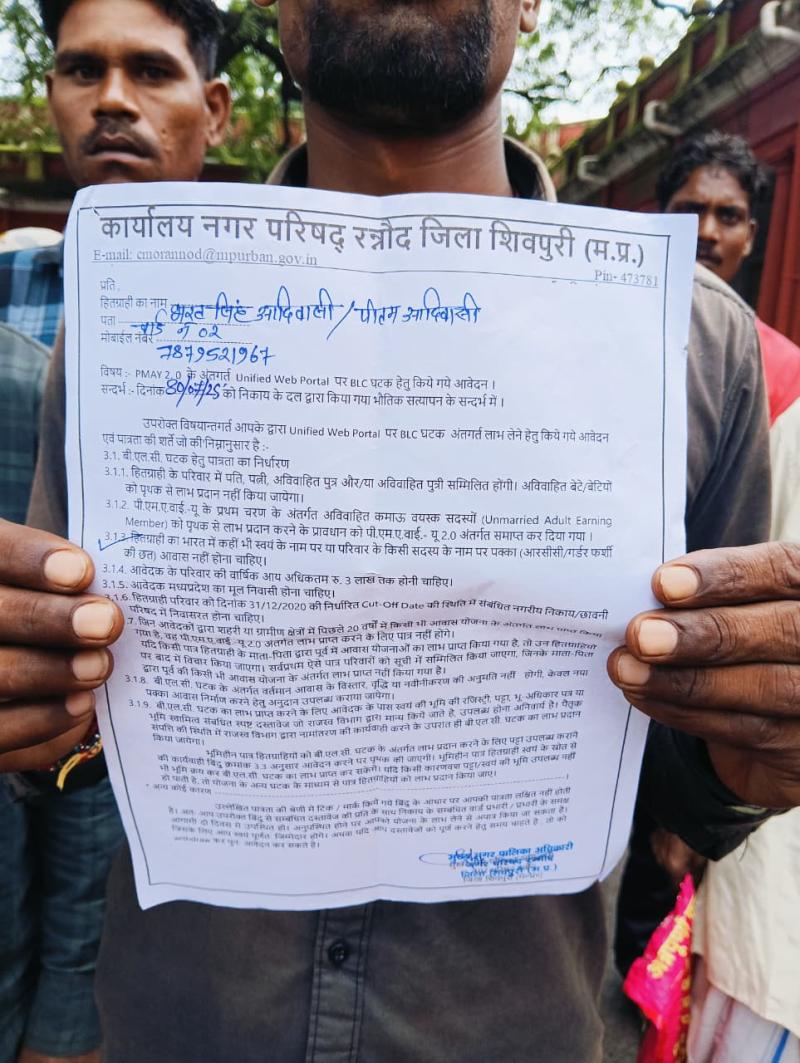 कार्यालय नगर परिषद् रन्नौद जिला शिवपुरी (म.प्र.)
E-mail: cmorannod@mpurban.gov.in
Pin- 473781
प्रति,
हितग्राही का नाम भरत सिंह आदिवासी / पीतम आदिवासी
पता वार्ड न 02
मोबाईल नंबर
7879521967
विषय :- PMAY 2.0 के अंतर्गत Unified Web Portal पर BLC घटक हेतु किये गये आवेदन ।
सन्दर्भ :- दिनांक 30/07/25 को निकाय के दल द्वारा किया गया भौतिक सत्यापन के सन्दर्भ में ।
उपरोक्त विषयान्तगर्त आपके द्वारा Unified Web Portal पर BLC घटक अंतगर्त लाभ लेने हेतु किये गये आवेदन
एवं पात्रता की शर्ते जो की निम्नानुसार है :-
3.1. बी.एल.सी. घटक हेतु पात्रता का निर्धारण
3.1.1. हितग्राही के परिवार में पति, पत्नी, अविवाहित पुत्र और/या अविवाहित पुत्री सम्मिलित होगी। अविवाहित बेटे/बेटियों
को पृथक से लाभ प्रदान नहीं किया जायेगा।
3.1.2. पी.एम.ए.वाई.-यू के प्रथम चरण के अंतर्गत अविवाहित कमाऊ वयस्क सदस्यों (Unmarried Adult Earning
Member) को पृथक से लाभ प्रदान करने के प्रावधान को पी.एम.ए.वाई.- यू 2.0 अंतर्गत समाप्त कर दिया गया ।
3.1.3. हितग्राही का भारत में कहीं भी स्वयं के नाम पर या परिवार के किसी सदस्य के नाम पर पक्का (आरसीसी/गर्डर फर्शी
की छत) आवास नहीं होना चाहिए।
3.1.4. आवेदक के परिवार की वार्षिक आय अधिकतम रु. 3 लाख तक होनी चाहिए।
3.1.5. आवेदक मध्यप्रदेश का मूल निवासी होना चाहिए।
3.1.6. हितग्राही परिवार को दिनांक 31/12/2020 की निर्धारित Cut-Off Date की स्थिति में संबंधित नगरीय निकाय/छावनी
परिषद में निवासरत होना चाहिए।
7. जिन आवेदकों द्वारा शहरी या ग्रामीण क्षेत्रों में पिछले 20 वर्षों में किसी भी आवास योजना के अंतर्गत लाभ प्राप्त किया
गया है, वह पी.एम.ए.वाई.-यू 2.0 अंतर्गत लाभ प्राप्त करने के लिए पात्र नहीं होगे।
यदि किसी पात्र हितग्राही के माता-पिता द्वारा पूर्व में आवास योजनाओं का लाभ प्राप्त किया गया है, तो उन हितग्राहियों
पर बाद में विचार किया जाएगा। सर्वप्रथम ऐसे पात्र परिवारों को सूची में सम्मिलित किया जाएगा, जिनके माता-पिता
द्वारा पूर्व की किसी भी आवास योजना के अंतर्गत लाभ प्राप्त नहीं किया गया है।
3.1.8. बी.एल.सी. घटक के अंतर्गत वर्तमान आवास के विस्तार, वृद्धि या नवीनीकरण की अनुमति नहीं होगी, केवल नया
पक्का आवास निर्माण करने हेतु अनुदान उपलब्ध कराया जायेगा।
3.1.9. बी.एल.सी. घटक का लाभ प्राप्त करने के लिए आवेदक के पास स्वयं की भूमि की रजिस्ट्री, पट्टा, भू-अधिकार पत्र या
भूमि स्वामित्व संबंधित स्पष्ट दस्तावेज जो राजस्व विभाग द्वारा मान्य किये जाते है, उपलब्ध होना अनिवार्य है। पैतृक
संपत्ति की स्थिति में राजस्व विभाग द्वारा नामांतरण की कार्यवाही करने के उपरांत ही बी.एल.सी. घटक का लाभ प्रदान
किया जायेगा।
भूमिहीन पात्र हितग्राहियों को बी.एल.सी. घटक के अंतर्गत लाभ प्रदान करने के लिए पट्टा उपलब्ध कराने
की कार्यवाही बिंदु क्रमांक 3.3 अनुसार आवेदन करने पर पृथक की जाएगी। भूमिहीन पात्र हितग्राही स्वयं के स्रोत से
भी भूमि क्रय कर बी.एल.सी. घटक का लाभ प्राप्त कर सकेंगे। यदि किसी कारणवश पट्टा/स्वयं की भूमि उपलब्ध नहीं
हो पाती है, तो योजना के अन्य घटक के माध्यम से पात्र हितग्राहियों को लाभ प्रदान किया जाए।
* अन्य कोई कारण
उल्लेखित पात्रता की श्रेणी में टिक / मार्क किये गये बिंदु के आधार पर आपकी पात्रता लक्षित नहीं होती
है। अतः आप उपरोक्त बिंदु से सम्बंधित दस्तावेज की प्रति के साथ निकाय के सम्बंधित वार्ड प्रभारी / प्रभारी के समक्ष
आगामी दो दिवस में उपस्थित हो। अनुपस्थित होने पर आपको योजना के लाभ लेने से अपात्र किया जा सकता है।
जिसके लिए आप स्वयं पूर्णतः जिम्मेदार होंगे। अथवा यदि आप दस्तावेजों को पूर्ण करने हेतु समय चाहते है, तो को
कर पुनः आवेदन कर सकते है।
मुख्य नगर पालिका अधिकारी
नगर परिषद रन्नौद
जिला शिवपुरी (म.प्र.)